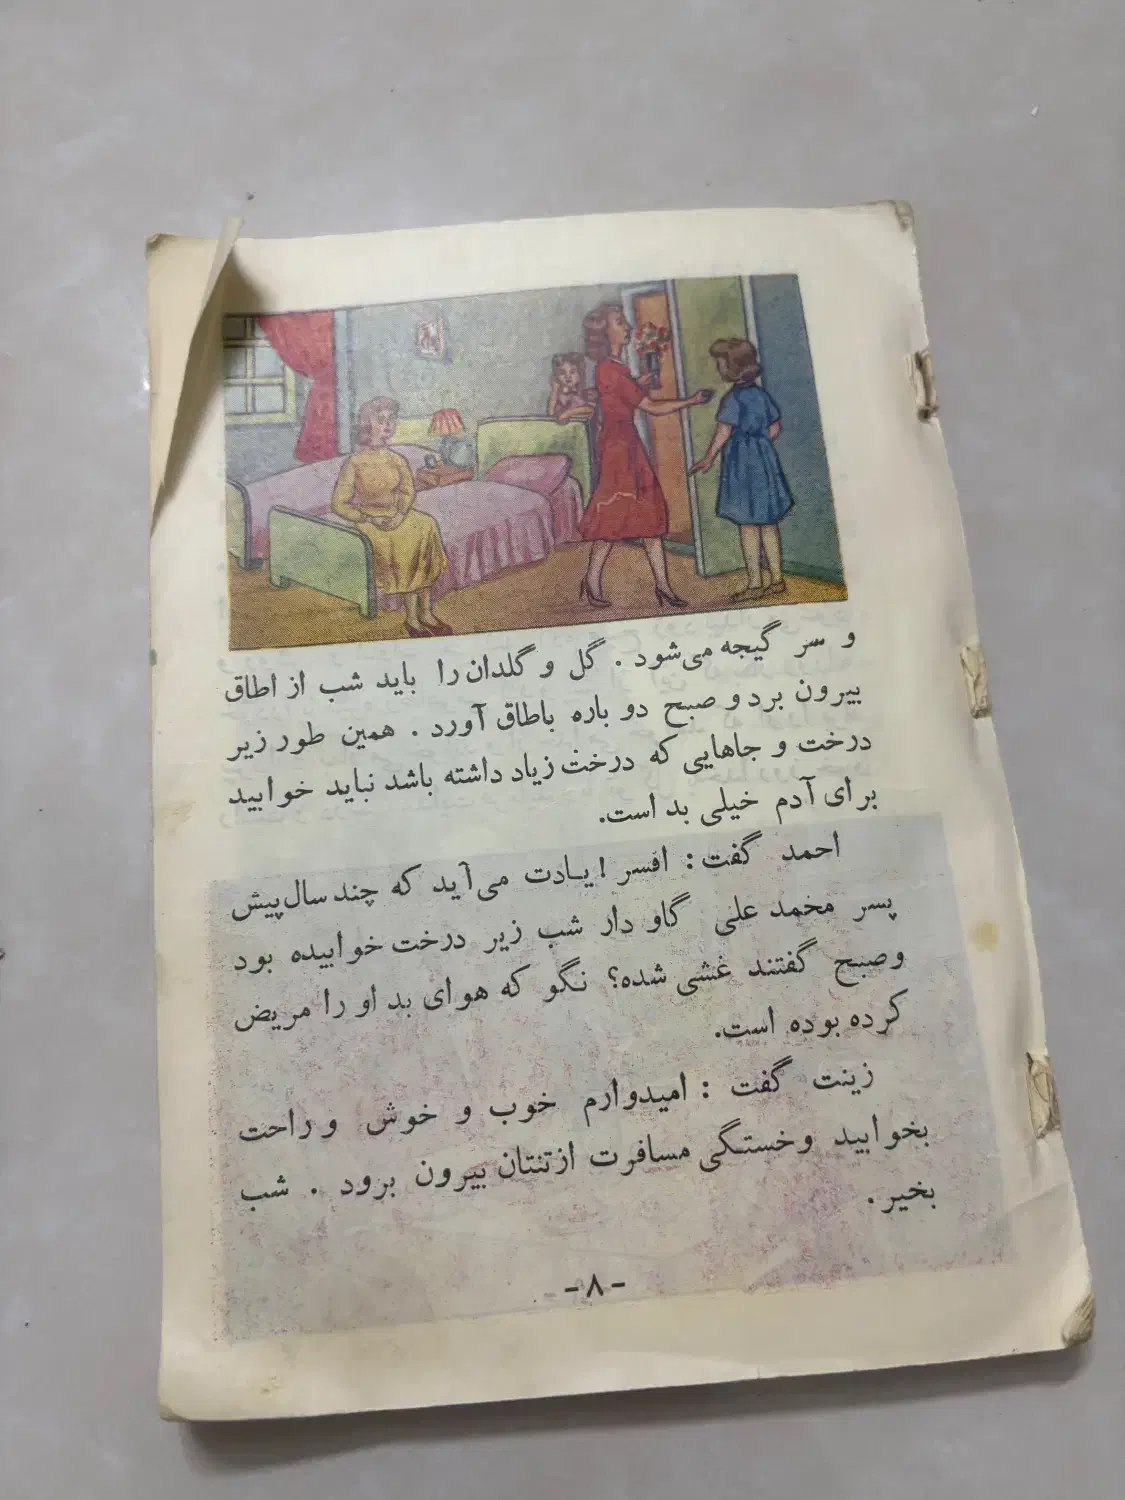 و سر گیجه می‌شود . گل و گلدان را باید شب از اطاق
بیرون برد و صبح دو باره باطاق آورد . همین طور زیر
درخت و جاهایی که درخت زیاد داشته باشد نباید خوابید
برای آدم خیلی بد است.
احمد گفت : افسر ! یادت می‌آید که چند سال پیش
پسر محمد علی گاو دار شب زیر درخت خوابیده بود
و صبح گفتند غشی شده؟ نگو که هوای بد او را مریض
کرده بوده است.
زینت گفت : امیدوارم خوب و خوش و راحت
بخوابید و خستگی مسافرت از تنتان بیرون برود . شب
بخیر .
-۸-